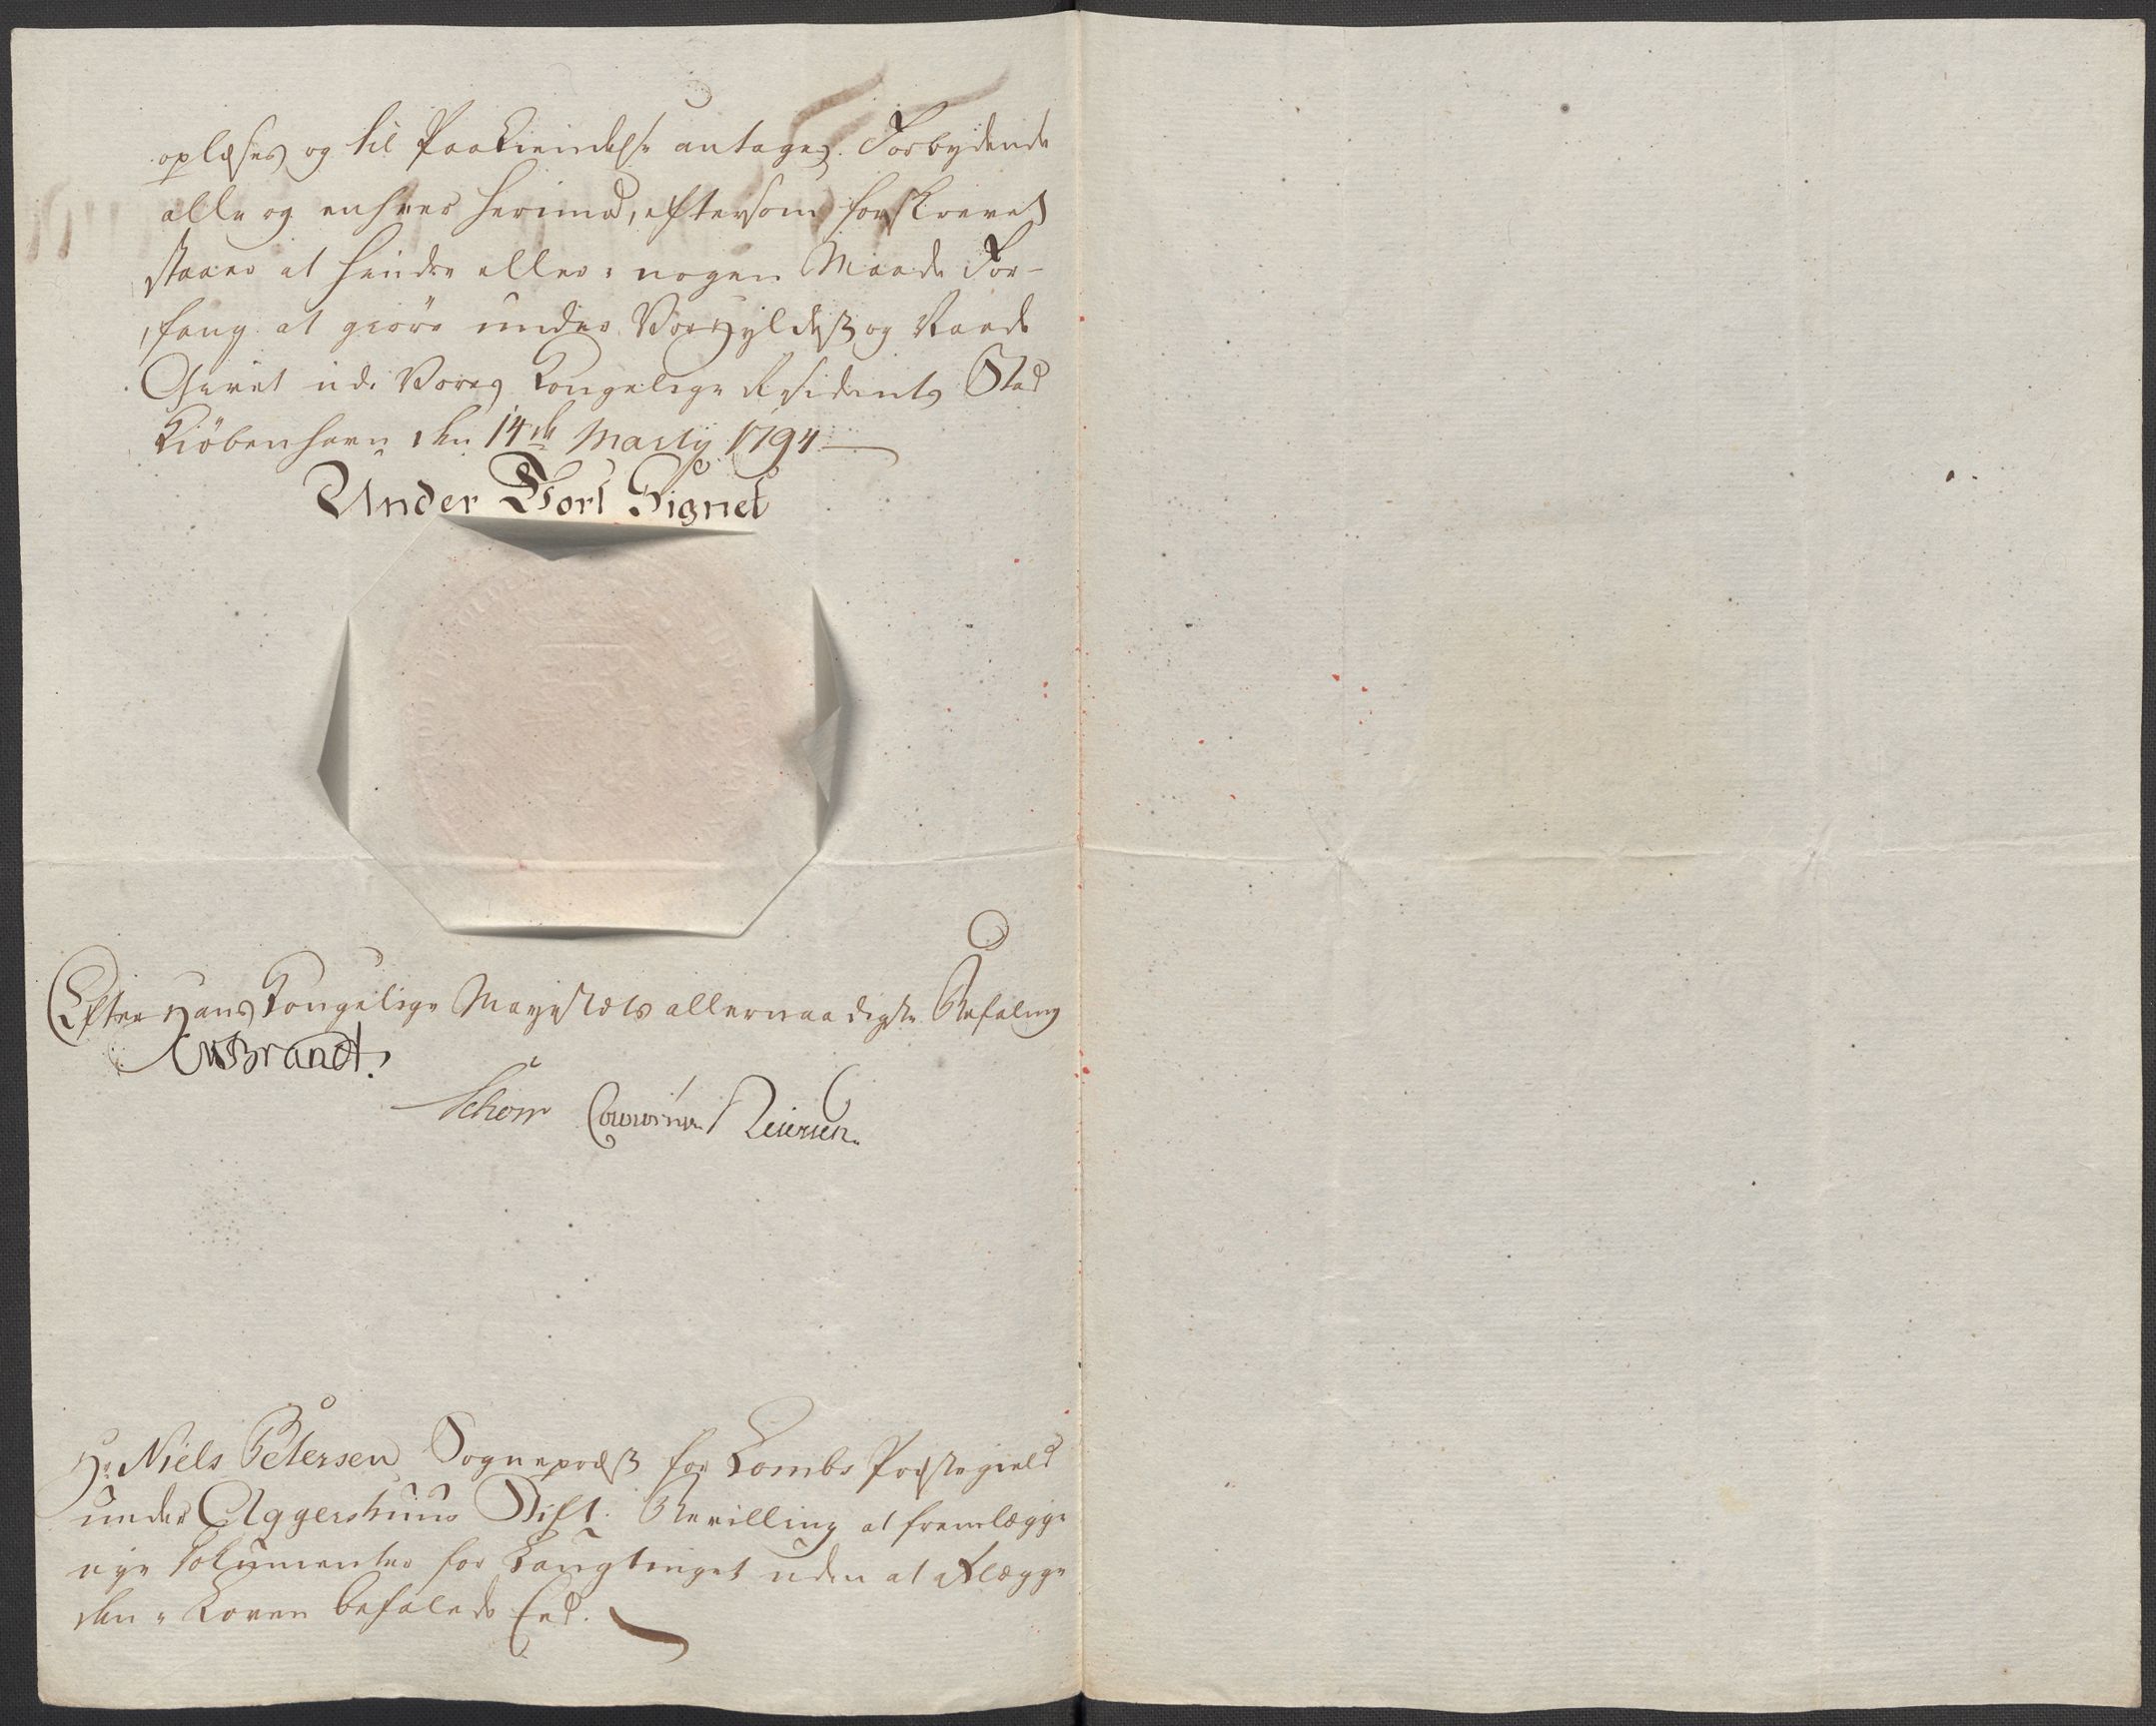 oplæses og til Paakiendelse antages. Forbydende
alle og enhver herimod, eftersom forskrevet
staaer at hindre eller i nogen Maade For-
fang at giøre under Vor Hyldest og Naade
Givet udi Vores Kongelige Residents Stad
Kiöbenhavn den 14de Martij 1794
Under Vort Signet
Efter Hans Kongelige Mayestæts allernaadigste Befaling
Brandt.
Schow
Hr. Niels Petersen Sognepræst for Lombs Præstegield
under Aggershuus Stift. Bevilling at fremlægge
nye Documenter for Laugtinget uden at aflægge
den i Loven befalede Eed.